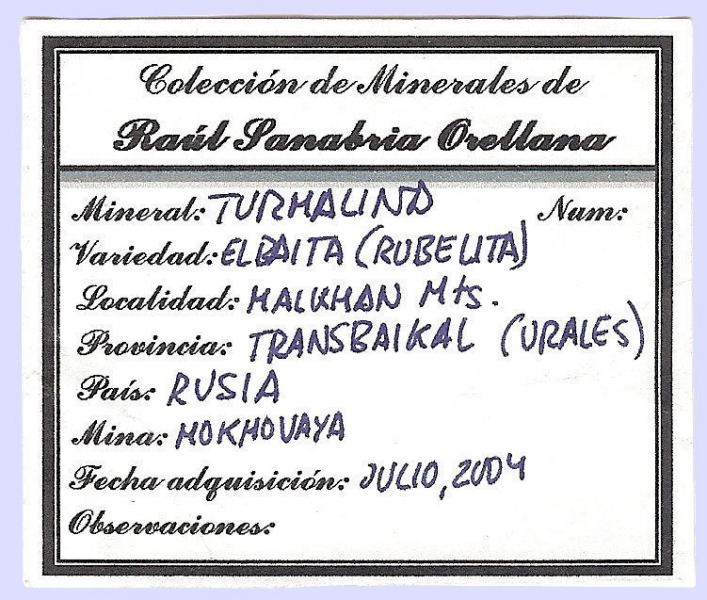 Colección de Minerales de
Raúl Sanabria Orellana
Mineral: TURMALINA Num:
Variedad: ELBAITA (RUBELITA)
Localidad: MALKHAN Mts.
Provincia: TRANSBAIKAL (URALES)
País: RUSIA
Mina: MOKHOVAYA
Fecha adquisición: JULIO, 2004
Observaciones: